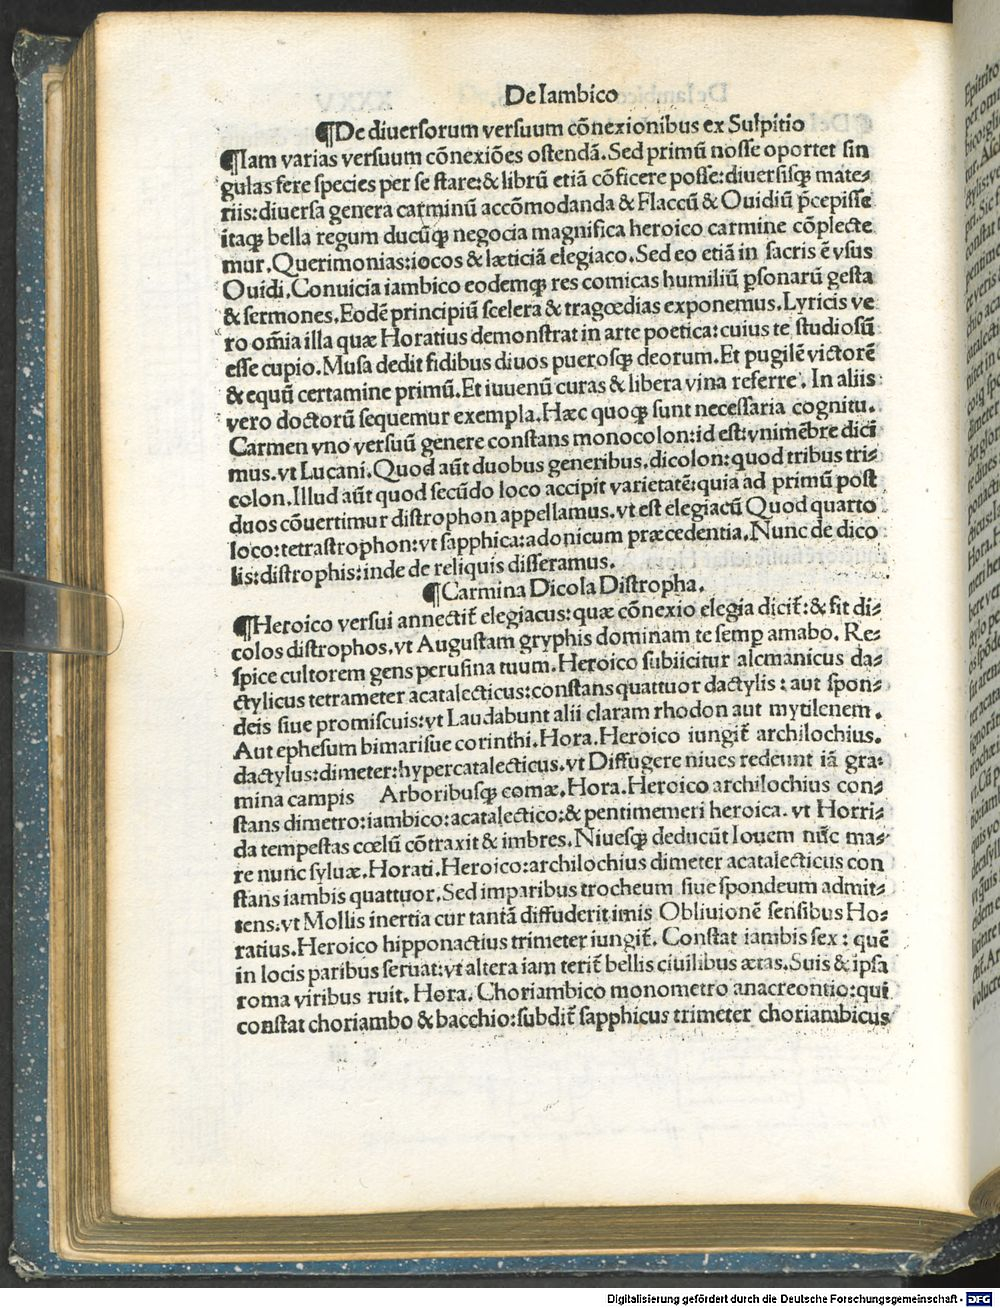 De Iambico
¶De diuersorum versuum cõnexionibus ex Sulpitio
¶Iam varias versuum cõnexiões ostendã. Sed primũ nosse oportet sin
gulas fere species per se stare: & librũ etiã cõficere posse: diuersisq; mate-
riis: diuersa genera carminũ accõmodanda & Flaccũ & Ouidiũ p̃cepisse
itaq; bella regum ducũq; negocia magnifica heroico carmine cõplecte
mur. Querimonias: iocos & læticiã elegiaco. Sed eo etiã in sacris ẽ vsus
Ouidi. Conuicia iambico eodemq; res comicas humiliũ ꝑsonarũ gesta
& sermones. Eodẽ principiũ scelera & tragœdias exponemus. Lyricis ve
ro om̃ia illa quæ Horatius demonstrat in arte poetica: cuius te studiosũ
esse cupio. Musa dedit fidibus diuos puerosq; deorum. Et pugilẽ victorẽ
& equũ certamine primũ. Et iuuenũ curas & libera vina referre. In aliis
vero doctorũ sequemur exempla. Hæc quoq; sunt necessaria cognitu.
Carmen vno versuũ genere constans monocolon: id est: vnimẽbre dici
mus. vt Lucani. Quod aũt duobus generibus. dicolon: quod tribus tri-
colon. Illud aũt quod secũdo loco accipit varietatẽ: quia ad primũ post
duos cõuertimur distrophon appellamus. vt est elegiacũ Quod quarto
loco: tetrastrophon: vt sapphica: adonicum præcedentia. Nunc de dico
lis: distrophis: inde de reliquis disseramus.
¶Carmina Dicola Distropha.
¶Heroico versui annectit̃ elegiacus: quæ cõnexio elegia dicit̃: & fit di-
colos distrophos. vt Augustam gryphis dominam te semꝑ amabo. Re-
spice cultorem gens perusina tuum. Heroico subiicitur alcmanicus da-
ctylicus tetrameter acatalecticus: constans quattuor dactylis: aut spon-
deis siue promiscuis: vt Laudabunt alii claram rhodon aut mytilenem.
Aut ephesum bimarisue corinthi. Hora. Heroico iungit̃ archilochius.
dactylus: dimeter: hypercatalecticus. vt Diffugere niues redeunt iã gra-
mina campis Arboribusq; comæ. Hora. Heroico archilochius con-
stans dimetro: iambico: acatalectico: & pentimemeri heroica. vt Horri-
da tempestas cœlũ cõtraxit & imbres. Niuesq; deducũt Iouem nũc ma-
re nunc syluæ. Horati. Heroico: archilochius dimeter acatalecticus con
stans iambis quattuor. Sed imparibus trocheum siue spondeum admit-
tens: vt Mollis inertia cur tantã diffuderit imis Obliuionẽ sensibus Ho-
ratius. Heroico hipponactius trimeter iungit̃. Constat iambis sex: quẽ
in locis paribus seruat: vt altera iam terit̃ bellis ciuilibus ætas. Suis & ipsa
roma viribus ruit. Hora. Choriambico monometro anacreontio: qui
constat choriambo & bacchio: subdit̃ sapphicus trimeter choriambicus
Digitalisierung gefördert durch die Deutsche Forschungsgemeinschaft - DFG